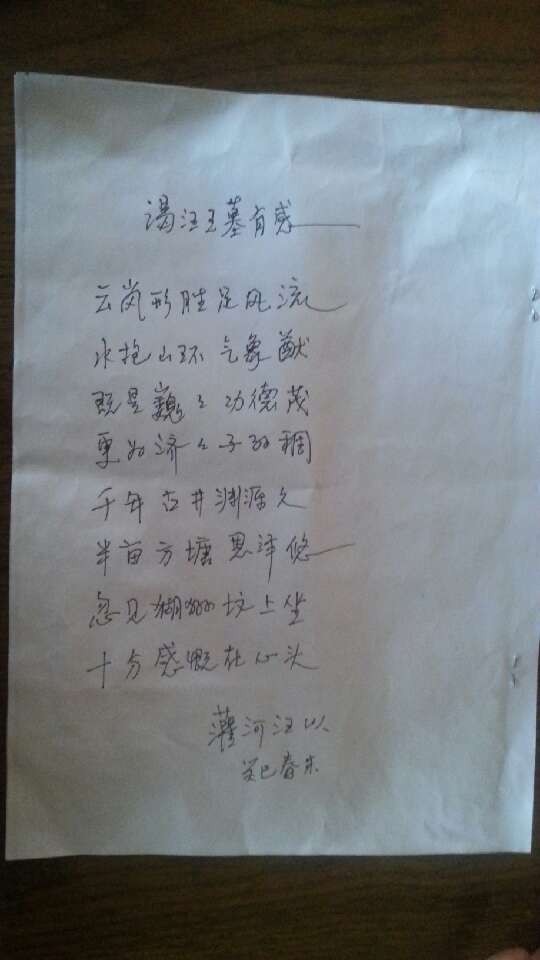 谒汪王墓有感
云岚形胜足风流
水抱山环气象猷
既是巍々功德茂
更为济々子孙稠
千年古井渊源久
半亩方塘恩泽悠
忽见猢狲坟上坐
十分感慨在心头
灌河汪以
癸巳春末